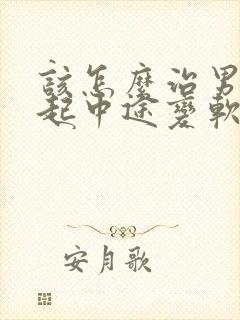 该怎麼治男
起中途變軟
安月歌